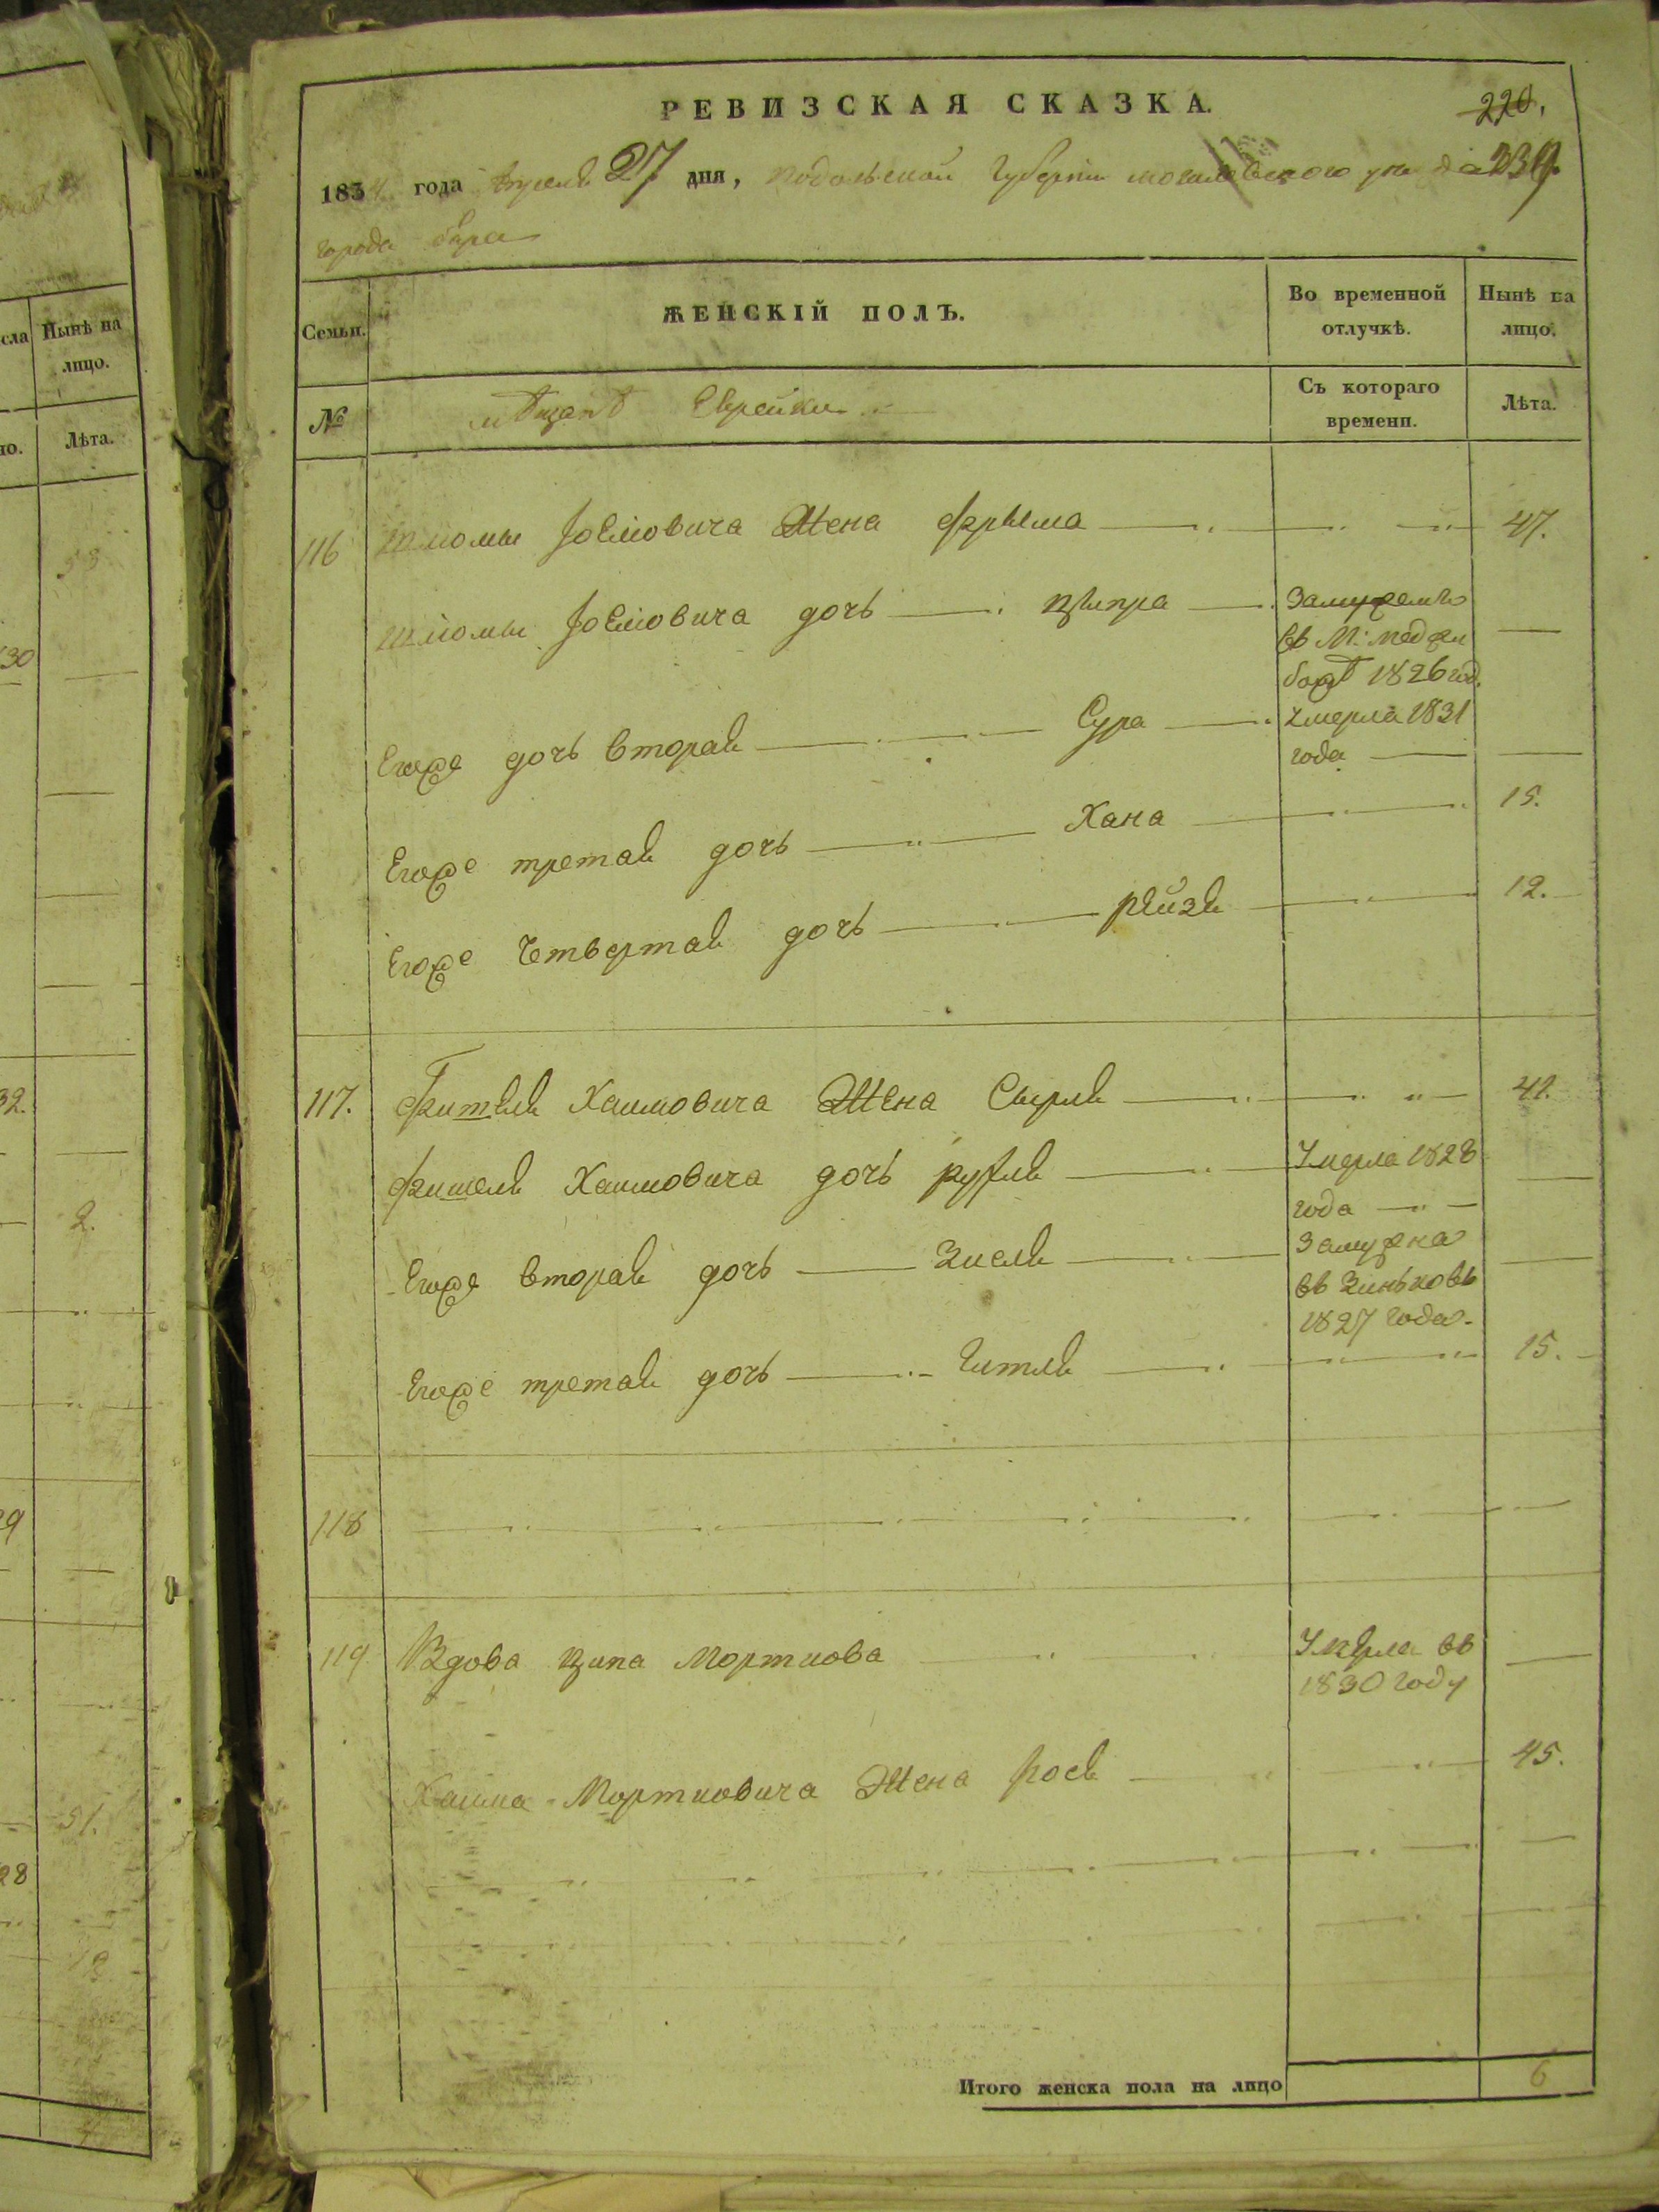 сла
Нынѣ на
лицо.
но.
Лѣта.
53
30
32.
2.
29
51.
28
РЕВИЗСКАЯ СКАЗКА.
220.
1834 года Апреля 27 дня, Подольской Губернiи могилевского уезда 239.
города Бара
Семьи.
ЖЕНСКIЙ ПОЛЪ.
Во временной
отлучкѣ.
Нынѣ на
лицо.
№
мѣщанѣ Еврейки
Съ котораго
времени.
Лѣта.
116 Шломы Жена Фрыма 47.
Шломы дочь Ципра Замужемъ
въ М: Меджи
божѣ 1826 год.
Егоже дочь вторая Сура Умерла 1831
года
Егоже третая дочь Хана 15.
Егоже Четвертая дочь Рейзя 12.
117. Фишеля Хаимовича Жена Сырля 41.
Фишеля Хаимовича дочь рухля Умерла 1828
года
Егоже вторая дочь Зисля Замужна
въ Зиньковъ
1827 года.
Егоже третая дочь Гитля 15.
118
119 Вдова Ципа Морткова Умерла въ
1830 году
Хаима Мортковича Жена Рося 45.
Итого женска пола на лицо 6